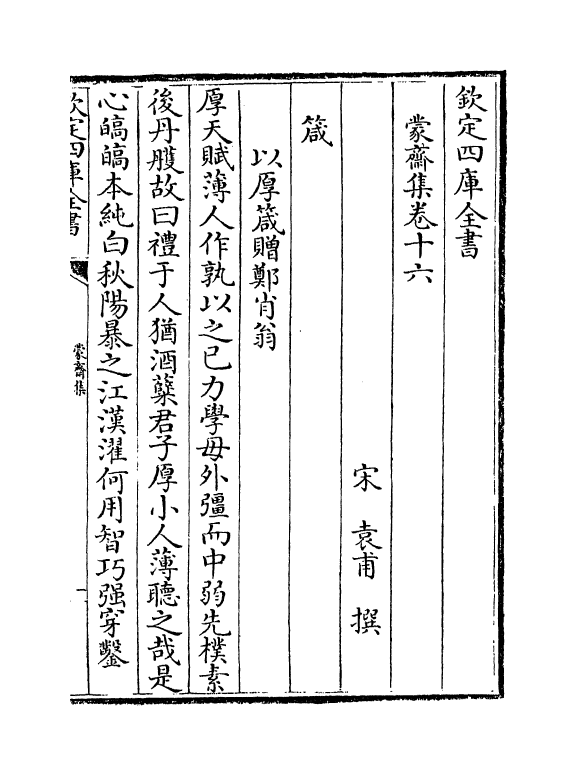 欽定四庫全書
蒙齋集卷十六
宋 袁甫 撰
箴
以厚箴贈鄭肖翁
厚天賦薄人作孰以之已力學毋外彊而中弱先樸素
後丹雘故曰禮于人猶酒蘖君子厚小人薄聽之哉是
心皜皜本純白秋陽暴之江漢濯何用智巧强穿鑿
欽定四庫全書
蒙齋集
一